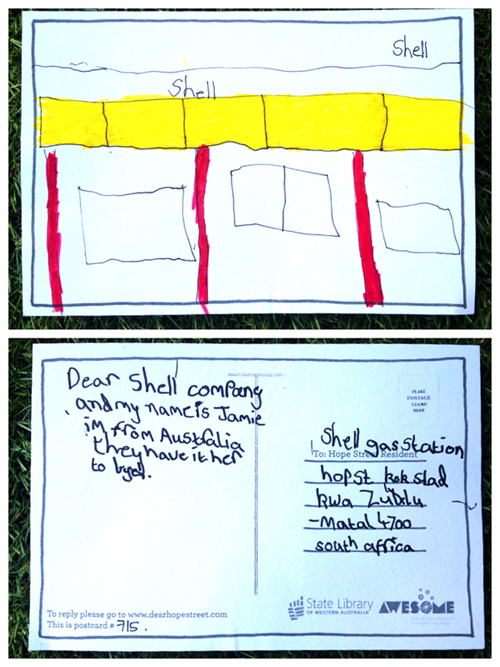 Shell
Shell
Dear Shell company
and my name is Jamie
im from Australia
they have it her
to
PLACE
POSTAGE
STAMP
HERE
Shell gas station
To: Hope Street Resident
hop st kok stad
kwa Zululu
-Matal 4700
south africa
To reply please go to www.dearhopestreet.com
This is postcard # 715.
State Library
OF WESTERN AUSTRALIA
AWESOME